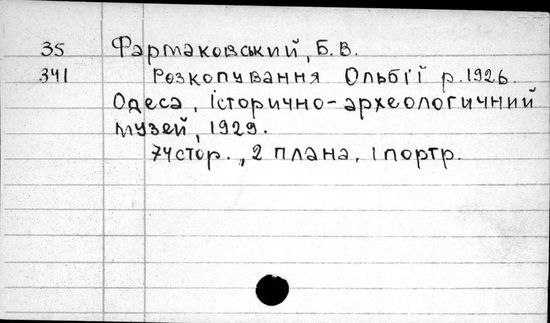 35 Фармаковський, Б.В.
341 Розкопування Ольбії р.1926.
Одеса, історично-археологичний
музей, 1929.
74стор., 2 плана, 1 портр.